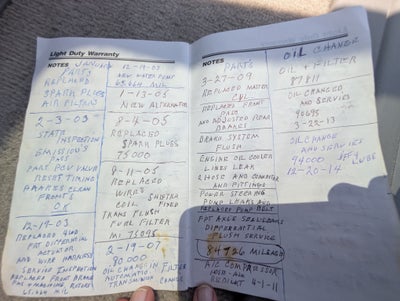 Light Duty Warranty
NOTES JANUARY
PARTS
REPLACED
SPARK PLUGS
AIR FILTER
2-3-03
STATE
INSPECTION
EMISSIONS
PASS
PART PCV VALVE
RESET TIMING
BRAKES CLEAN
FRONTS
OK
12-19-03
REPLACED
FRT DIFFERENTIAL
ACTUATOR
AND WIRE HARNESS
SERVICE INSPECTION
REPLACED FRONT BRAKE
PADS + MACHINE ROTORS
12-19-03
NEW WATER PUMP
MIL
1-13-05
NEW ALTERNATOR
8-4-05
REPLACED
SPARK PLUGS
75000
8-11-05
REPLACED
WIRES
COIL
FIXED
TRANS FLUSH
FUEL FILTER
MI 75095
2-19-07
80000
OIL CHANGE IN FILTER
AUTOMATIC
TRANSMISION CHANGE
NOTES
PARTS
3-27-09
REPLACED MASTER
CYL
REPLACED FRONT
PADS
AND ADJUSTED REAR
BRAKES
BRAKE SYSTEM
FLUSH
ENGINE OIL COOLER
LINES LEAK
HOSE AND
AND FITTINGS
POWER STEERING
PUMP LEAKS AND
REPLACED PUMP BELT
FRT AXLE SEALS LEAKS
DIFFERENTIAL
FLUSH SERVICE
84926 MILEAGE
A/C COMPRESSOR
4-1-11
OIL CHANGE
OIL + FILTER
87811
OIL CHANGED
AND SERVICES
90695
3-22-13
OIL CHANGE
AND SERVICES
94000
LUBE
12-20-14